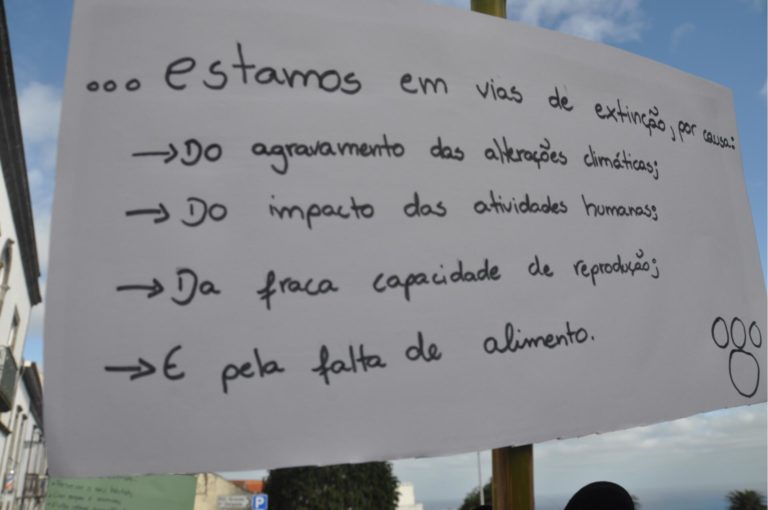 ... estamos em vias de extinção, por causa:
→ Do agravamento das alterações climáticas;
→ Do impacto das atividades humanas;
→ Da fraca capacidade de reprodução;
→ E pela falta de alimento.
P